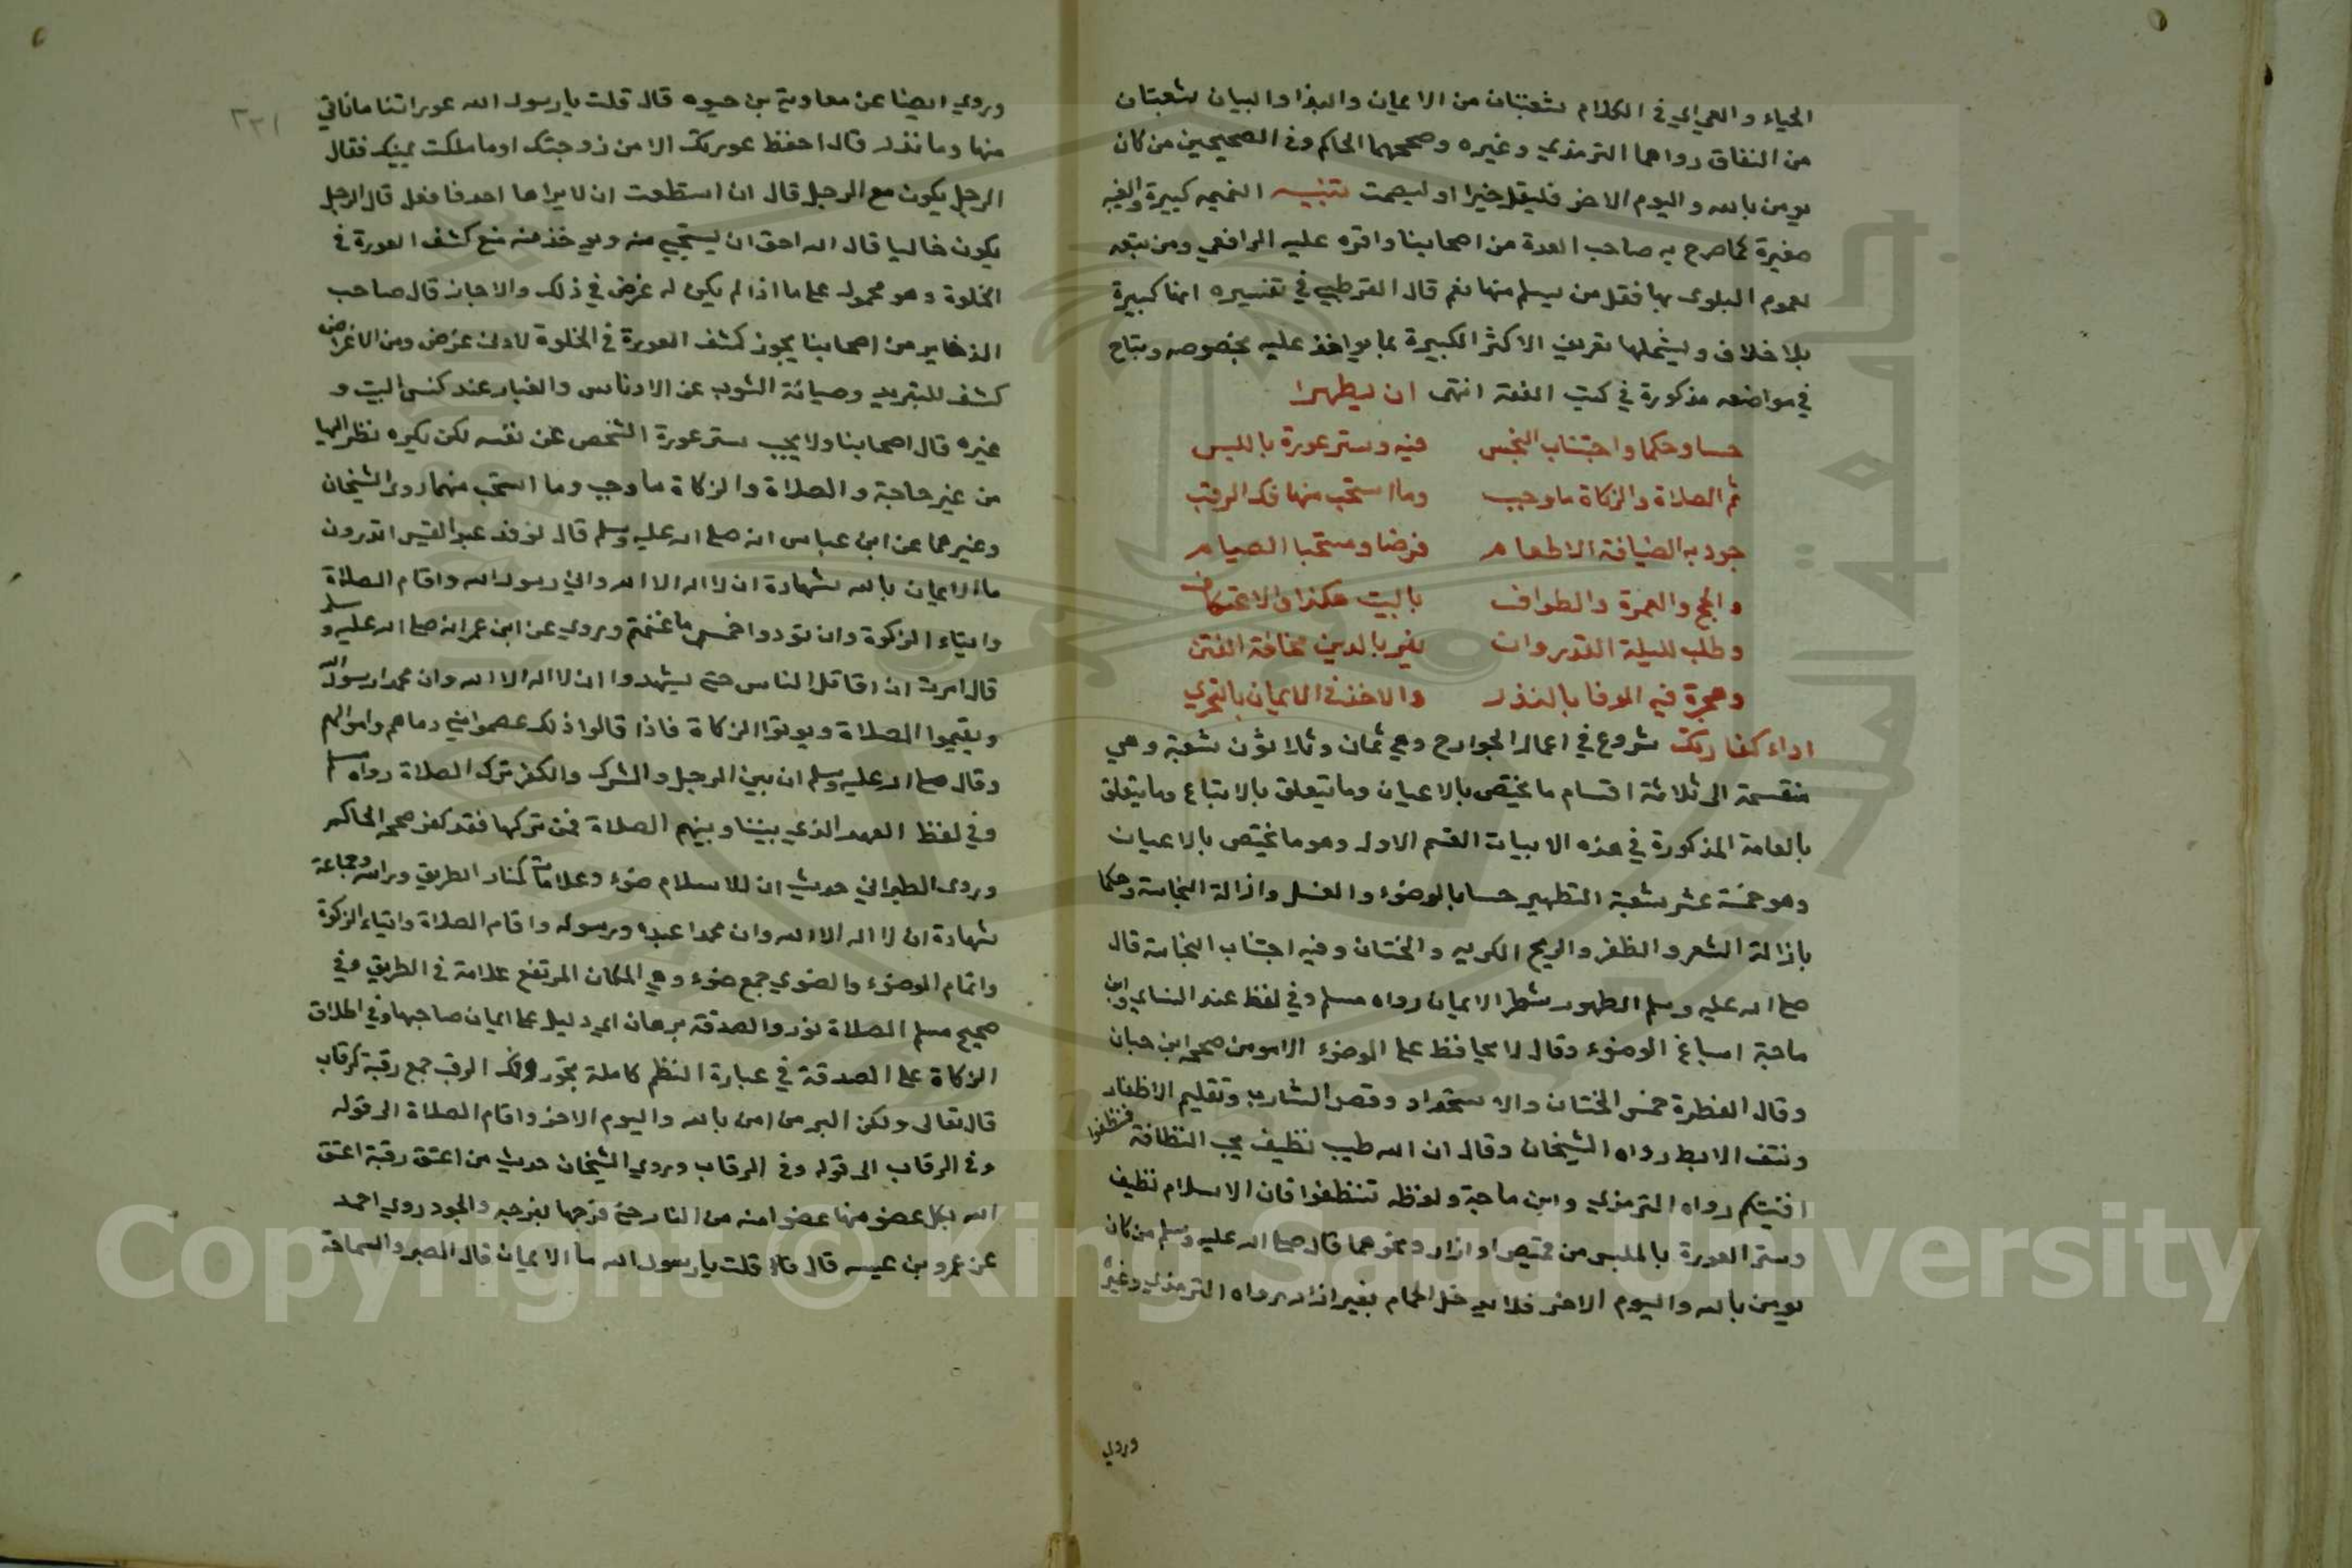 الحياء والعي اي في الكلام شعبتان من الايمان والبذا والبيان شعبتان
من النفاق رواهما الترمذي وغيره وصححهما الحاكم وفي الصحيحين من كان
يومن بالله واليوم الاخر فليقل خيرا او ليصمت تنبيه النميمه كبيرة والغيبه
صغيرة كما صرح به صاحب العدة من اصحابنا واقره عليه الرافعي ومن تبعه
لعموم البلوى بها فقل من يسلم منها نعم قال القرطبي في تفسيره انها كبيرة
بلا خلاف ويشملها تعريف الاكثر الكبيرة بما يواخذ عليه بخصوصه وتباح
في مواضعه مذكورة في كتب الفقه انتهى ان يطهرا
حسا وحكما واجتناب النجس فيه وستر عورة باللبس
ثم الصلاة والزكاة ما وجب وما استحب منها فك الرقب
جود به الضيافة الاطعام فرضا ومستحبا الصيام
والحج والعمرة والطواف بالبيت هكذا والاعتكاف
وطلب لليلة القدر وان يفر بالدين مخافة الفتن
وهجرة فيه الوفا بالنذر والاخذ في الايمان بالتحري
اداء كفارتك شروع في اعمال الجوارح وهي ثمان وثلاثون شعبة وهي
منقسمة الى ثلاثة اقسام ما يختص بالاعيان وما يتعلق بالاتباع وما يتعلق
بالعامة المذكورة في هذه الابيات القسم الاول وهو ما يختص بالاعيان
وهو خمسة عشر شعبة التطهير حسا بالوضوء والغسل وازالة النجاسة وحكما
بازالة الشعر والظفر والريح الكريه والختان وفيه اجتناب النجاسة قال
صلى الله عليه وسلم الطهور شطر الايمان رواه مسلم وفي لفظ عند النساي وابن
ماجة اسباغ الوضوء وقال لا يحافظ على الوضوء الا مومن صححه ابن حبان
وقال الفطرة خمس الختان والاستحداد وقص الشارب وتقليم الاظفار
ونتف الابط رواه الشيخان وقال ان الله طيب نظيف يحب النظافة فنظفوا
افنيتكم رواه الترمذي وابن ماجة ولفظه تنظفوا فان الاسلام نظيف
وستر العورة بالملبس من قميص او ازار ونحوهما قال صلى الله عليه وسلم من كان
يومن بالله واليوم الاخر فلا يدخل الحمام بغير ازار رواه الترمذي وغيره
وروي
٢٢١
وروي ايضا عن معاوية بن حيوه قال قلت يا رسول الله عوراتنا ما ناتي
منها وما نذر قال احفظ عورتك الا من زوجتك او ما ملكت يمينك فقال
الرجل يكون مع الرجل قال ان استطعت ان لا يراها احد فافعل قال الرجل
يكون خاليا قال الله احق ان يستحيي منه ويوخذ منه منع كشف العورة في
الخلوة وهو محمول على ما اذا لم يكن له غرض في ذلك والا جاز قال صاحب
الذخاير من اصحابنا يجوز كشف العورة في الخلوة لادنى غرض ومن الاغراض
كشف للتبريد وصيانة الثوب عن الادناس والغبار عند كنس البيت و
غيره قال اصحابنا ولا يجب ستر عورة الشخص عن نفسه لكن يكره نظر اليها
من غير حاجة والصلاة والزكاة ما وجب وما استحب منهما روى الشيخان
وغيرهما عن ابن عباس انه صلى الله عليه وسلم قال لوفد عبد القيس اتدرون
ما الايمان بالله شهادة ان لا اله الا الله واني رسول الله واقام الصلاة
وايتاء الزكوة وان تودوا خمس ما غنمتم وروي عن ابن عمر انه صلى الله عليه وسلم
قال امرت ان اقاتل الناس حتى يشهدوا ان لا اله الا الله وان محمدا رسول الله
ويقيموا الصلاة ويوتوا الزكاة فاذا قالوا ذلك عصموا مني دماهم واموالهم
وقال صلى الله عليه وسلم ان بين الرجل والشرك والكفر ترك الصلاة رواه مسلم
وفي لفظ العهد الذي بيننا وبينهم الصلاة فمن تركها فقد كفر صححه الحاكم
وروى الطبراني حديث ان للاسلام ضوء وعلامات كمنار الطريق وراسه وجماعة
شهادة ان لا اله الا الله وان محمدا عبده ورسوله واقام الصلاة وايتاء الزكوة
واتمام الوضوء والضوي جمع ضوء وهي المكان المرتفع علامة في الطريق وفي
صحيح مسلم الصلاة نور والصدقة برهان اي دليل على ايمان صاحبها وفي اطلاق
الزكاة على الصدقة في عبارة النظم كاملة تجوز وفك الرقب جمع رقبة كرقاب
قال تعالى ولكن البر من امن بالله واليوم الاخر واقام الصلاة الى قوله
وفي الرقاب الى قوله وفي الرقاب وروي الشيخان حديث من اعتق رقبة اعتق
الله بكل عضو منها عضوا منه من النار حتى فرجها بفرجه والجود روي احمد
عن عمرو بن عبسه قال قلت يا رسول الله ما الايمان قال الصبر والسماحة
Copyright © King Saud University